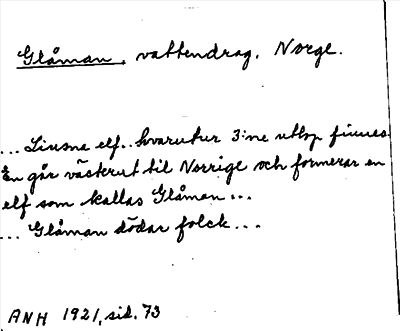 Glåman, vattendrag, Norge.
... Liusna elf.. hvarutur 3:ne utlop finnes
En går västerut til Norrige och formerar en
elf som kallas Glåman...
... Glåman dödar folck...
ANH 1921, sid. 73